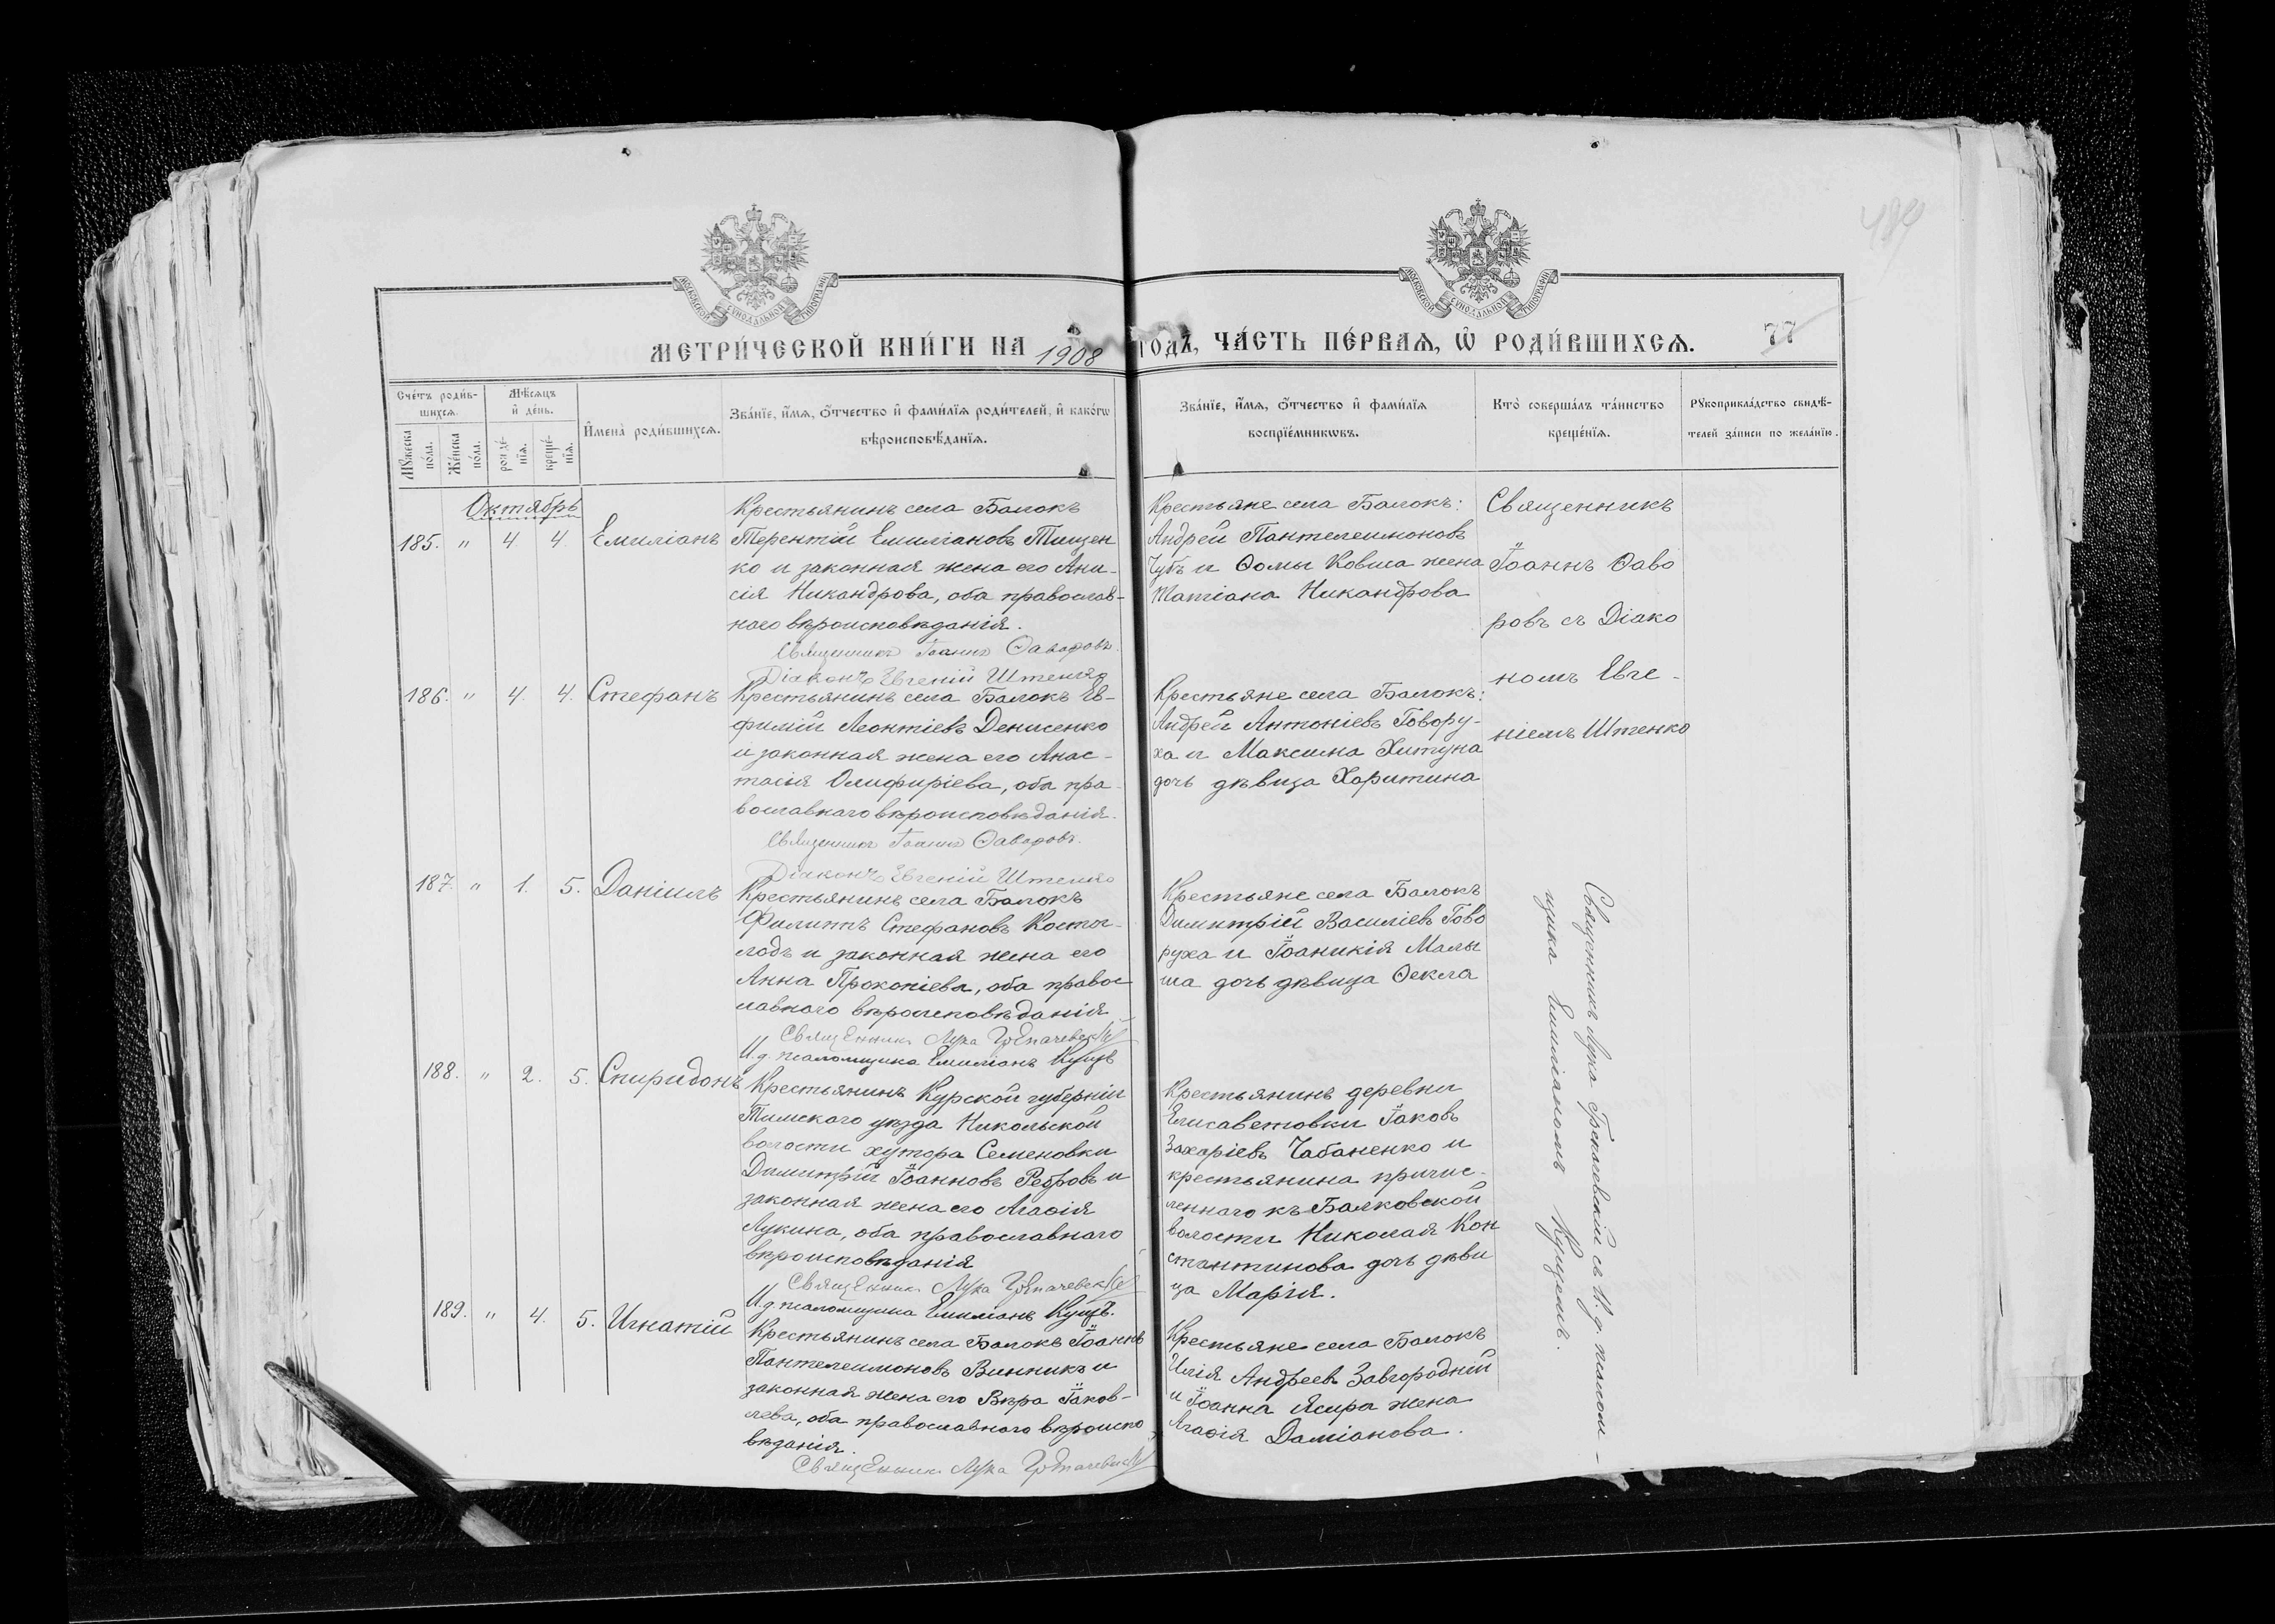 МОСКОВСКОЙ СѴНОДАЛЬНОЙ ТИПОГРАФІИ
МОСКОВСКОЙ СѴНОДАЛЬНОЙ ТИПОГРАФІИ
МЕТРИ́ЧЕСКОЙ КНИ́ГИ НА 1908 ГОДЪ, ЧА́СТЬ ПЕ́РВАѦ, Ѡ РОДИ́ВШИХСѦ.
77
Сче́тъ роди́в-
шихсѧ.
Мѣ́сѧцъ
и҆ де́нь.
Мꙋ́жеска
по́ла.
Же́нска
по́ла.
рожде́-
нїѧ.
креще́-
нїѧ.
И҆мена̀ роди́вшихсѧ.
Зва́нїе, и҆́мѧ, ѻ҆́тчество и҆ фами́лїѧ роди́телей, и҆ како́гѡ
вѣроисповѣ́данїѧ.
Зва́нїе, и҆́мѧ, ѻ҆́тчество и҆ фами́лїѧ
воспрїе́мникѡвъ.
Кто̀ соверша́лъ та́инство
креще́нїѧ.
Рꙋкоприкла́дство свидѣ́-
телей за́писи по жела́нїю.
Октябрь
185. " 4 4. Емиліанъ
Крестьянинъ села Балокъ
Терентій Емиліановъ Тищен
ко и законная жена его Ани-
сія Никандрова, оба православ-
наго вѣроисповѣданія.
Священникъ Іоаннъ Ѳаворовъ.
Діаконъ Евгеній Штенко
Крестьяне села Балокъ:
Андрей Пантелеимоновъ
Чубъ и Ѳомы Ковша жена
Татіана Никандрова
Священникъ
Іоаннъ Ѳаво
ровъ съ Діако
номъ Евге-
ніемъ Штенко
186. " 4. 4. Стефанъ
Крестьянинъ села Балокъ Ев-
фимій Леонтіевъ Денисенко
и законная жена его Анас-
тасія Олифиріева, оба пра-
вославнаго вѣроисповѣданія.
Священникъ Іоаннъ Ѳаворовъ.
Діаконъ Евгеній Штенко
Крестьяне села Балокъ:
Андрей Антоніевъ Говору-
ха и Максима Хитуна
дочь дѣвица Харитина
187. " 1. 5. Даніилъ
Крестьянинъ села Балокъ
Филиппъ Стефановъ Косто-
лодъ и законная жена его
Анна Прокопіева, оба правос
лавнаго вѣроисповѣданія
Священникъ Лука
И.д. псаломщика Емиліанъ Кущъ
Крестьяне села Балокъ
Димитрій Василіевъ Гово
руха и Іоаникія Малы
ша дочь дѣвица Ѳекла
Священникъ Лука съ И.д. псалом-
щика Емиліаномъ Кущемъ.
188. " 2. 5. Спиридонъ
Крестьянинъ Курской губерніи
Тимскаго уѣзда Никольской
волости хутора Семеновки
Димитрій Іоанновъ Ребровъ и
законная жена его Агаѳія
Лукина, оба православнаго
вѣроисповѣданія
Священникъ Лука
И.д. псаломщика Емиліанъ Кущъ.
Крестьянинъ деревни
Елисаветовки Іаковъ
Захаріевъ Чабаненко и
крестьянина причис-
леннаго къ Балковской
волости Николая Кон
стантинова дочь дѣви
ца Марія.
189. " 4. 5. Игнатій
Крестьянинъ села Балокъ Іоаннъ
Пантелеимоновъ Винникъ и
законная жена его Вѣра Іаков-
лева, оба православнаго вѣроиспо
вѣданія.
Священникъ Лука
Крестьяне села Балокъ
Илія Андреевъ Завгородній
и Іоанна Ясира жена
Агаѳія Даміанова.